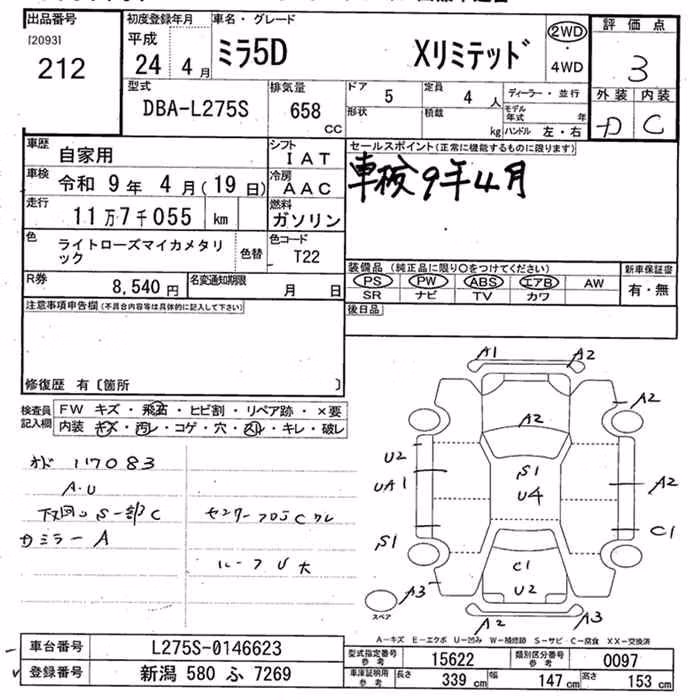 出品番号
[2093]
212
初度登録年月
平成
24 4 月
車名・グレード
ミラ5D Xリミテッド
2WD
・
4WD
評価点
3
外装 内装
D C
型式
DBA-L275S
排気量
658
CC
ドア 5
定員 4 人
形状
積載 kg
ディーラー・並行
モデル年式 年
ハンドル 左・右
車歴 自家用
シフト IAT
車検 令和 9 年 4 月(19 日)
冷房 AAC
走行 11 万 7 千 055 km
燃料 ガソリン
色 ライトローズマイカメタリック
色替
色コード T22
R券 8,540 円
名変通知期限 月 日
セールスポイント(正常に機能するものに限ります)
車検9年4月
装備品(純正品に限り○をつけてください)
新車保証書
PS PW ABS エアB AW
SR ナビ TV カワ
有・無
後日品
注意事項申告欄(不具合内容等は具体的に記入して下さい)
修復歴 有〔箇所 〕
検査員記入欄
FW キズ・飛石・ヒビ割・リペア跡・×要
内装 キズ・汚レ・コゲ・穴・スレ・キレ・破レ
オド 117083
A.U
下回り S 一部C
センターフロアCクレ
カミラー A
ルーフ U 大
A1 A2
A2
A2
U2
S1
UA1
U4
A2
C1
S1
C1
U2
A3
A2
A3
スペア
A-キズ E-エクボ U-凹み W-補修跡 S-サビ C-腐食 XX-交換済
車台番号 L275S-0146623
登録番号 新潟 580 ふ 7269
型式指定番号参考 15622
類別区分番号参考 0097
車庫証明用参考
長さ 339 cm
幅 147 cm
高さ 153 cm